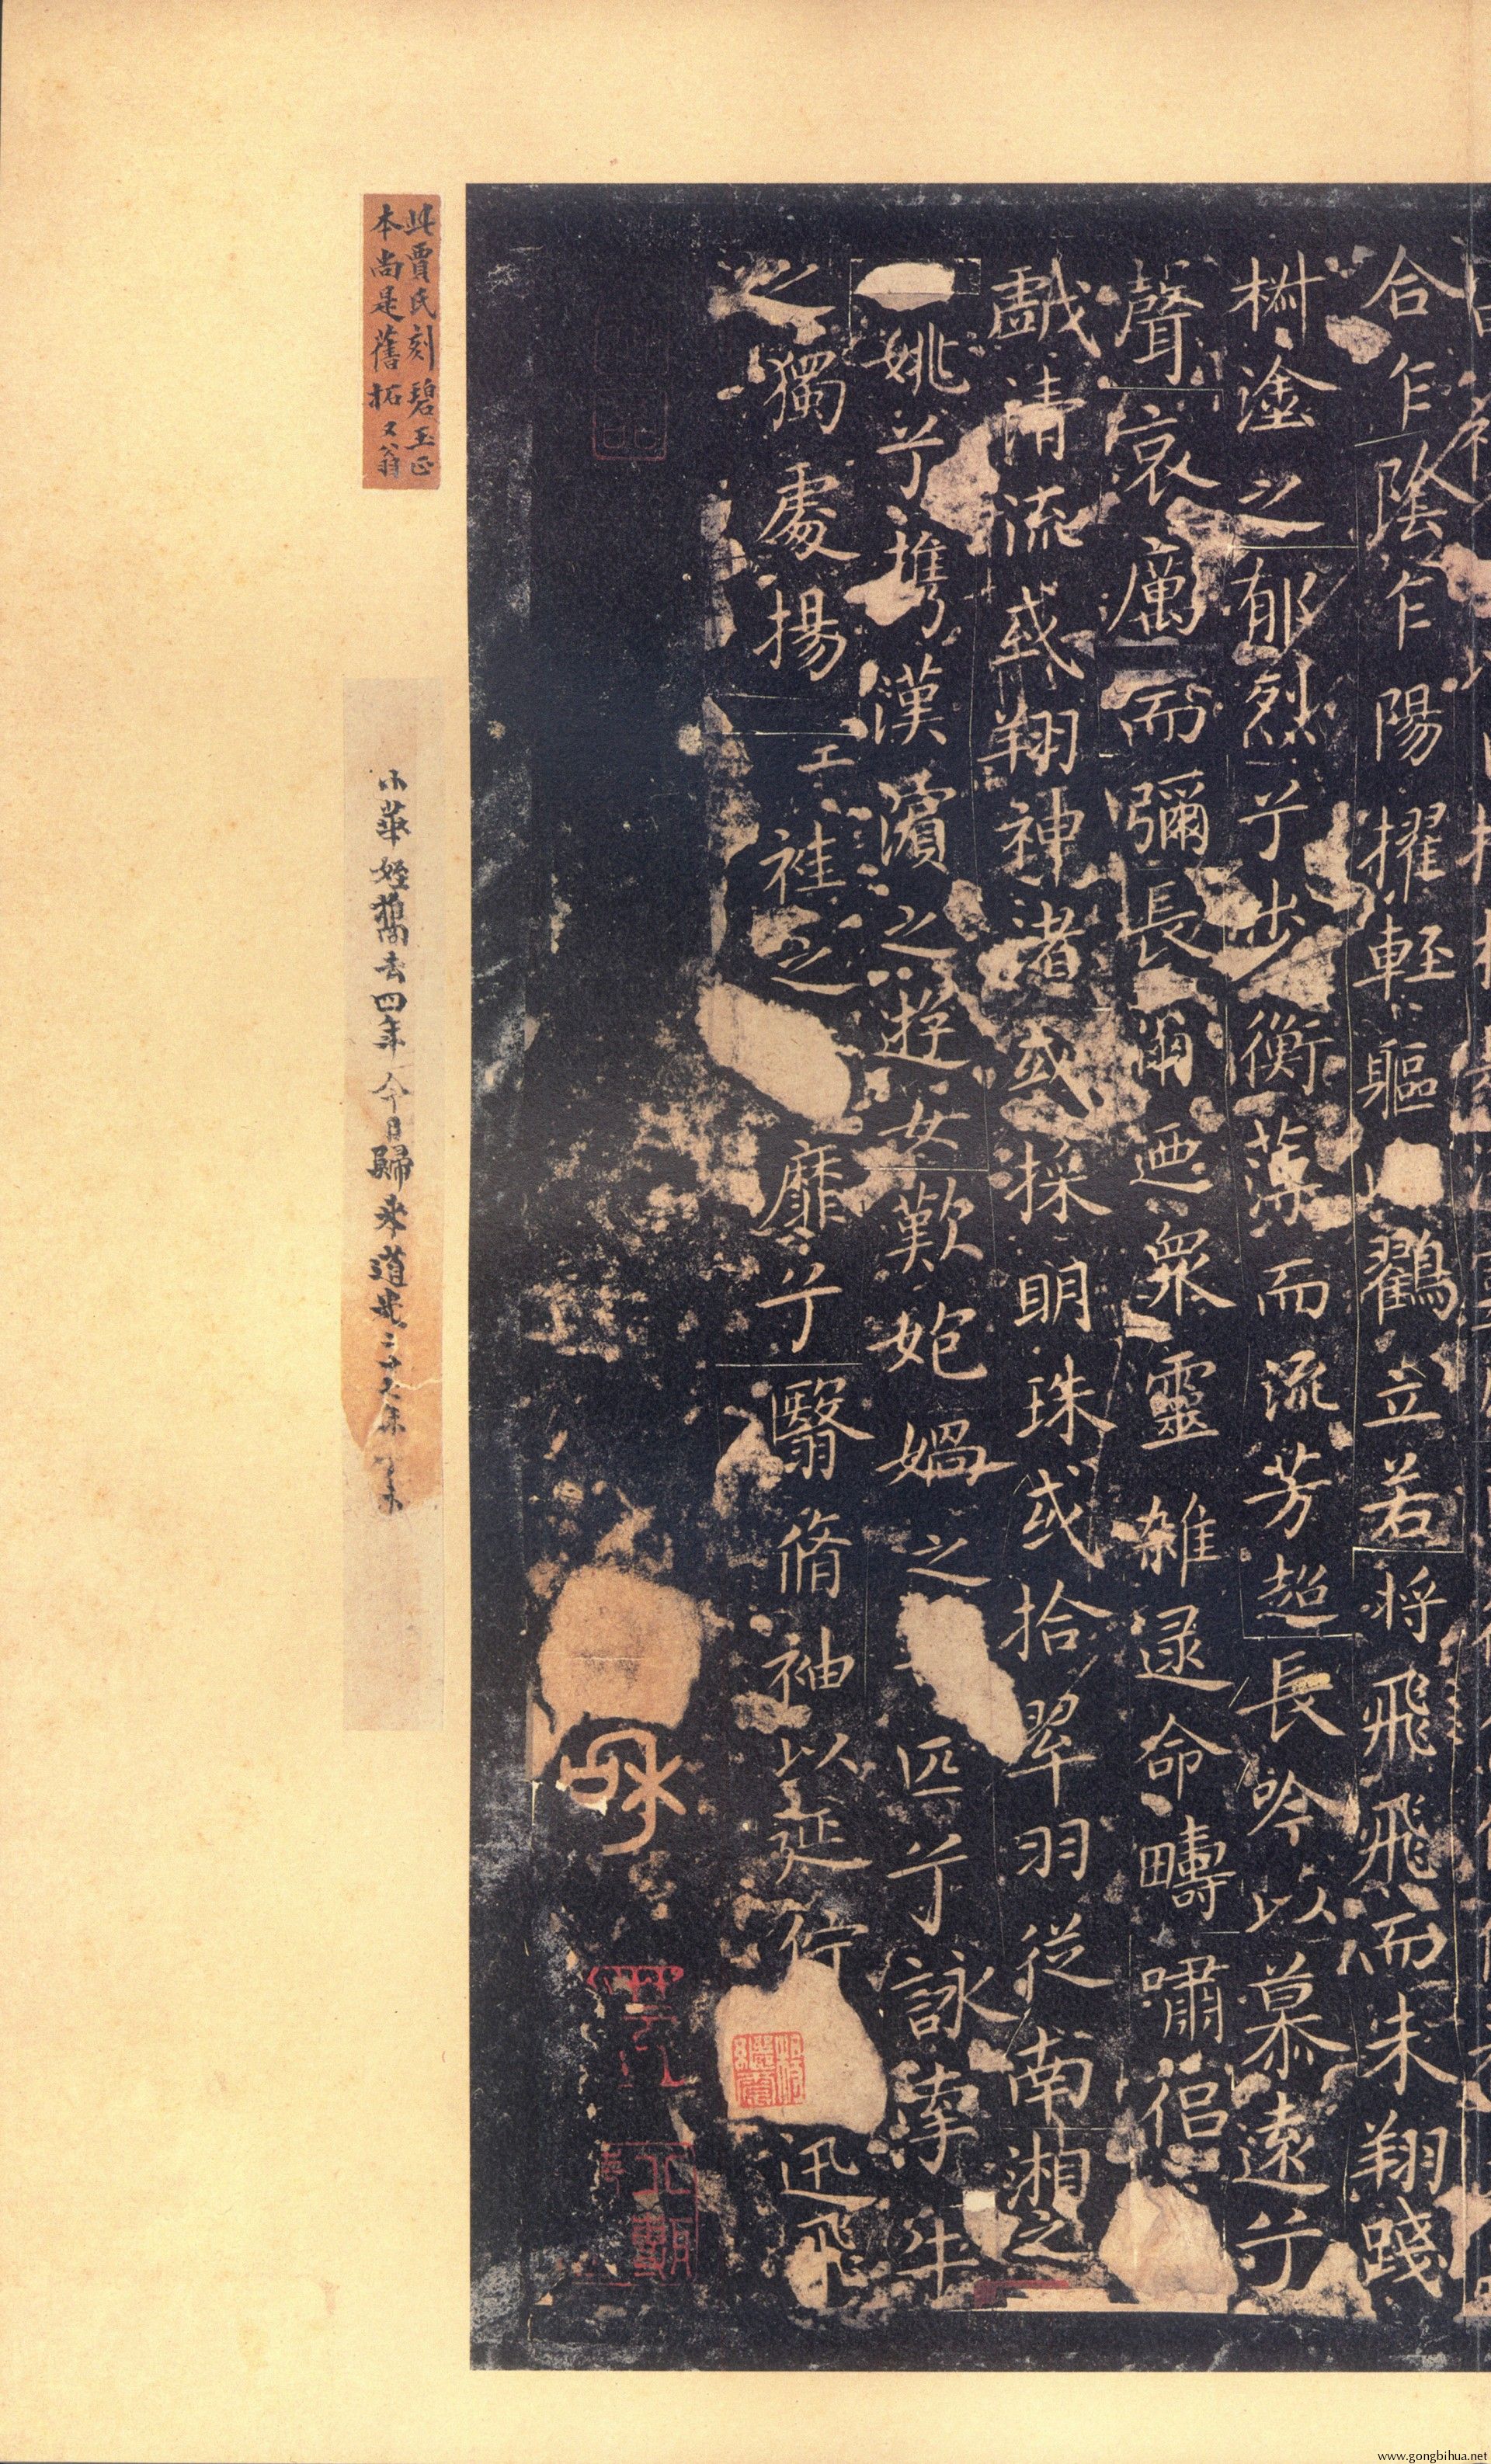 合乍陰乍陽擢輕軀鶴立若将飛飛而未翔踐
椒塗之郁烈兮步衡薄而流芳超長吟以慕遠兮
聲哀厲而彌長爾迺衆靈雜遝命疇嘯侶
戲清流或翔神渚或採明珠或拾翠羽從南湘之
姚兮攜漢濱之遊女歎匏媧之匹兮詠牽牛
之獨處揚袿之靡兮翳脩袖以延佇迅飛
此賈氏刻碧玉正
本尚是舊拓
小華姪攜去四年今日歸來道光二十七年
www.gongbihua.net